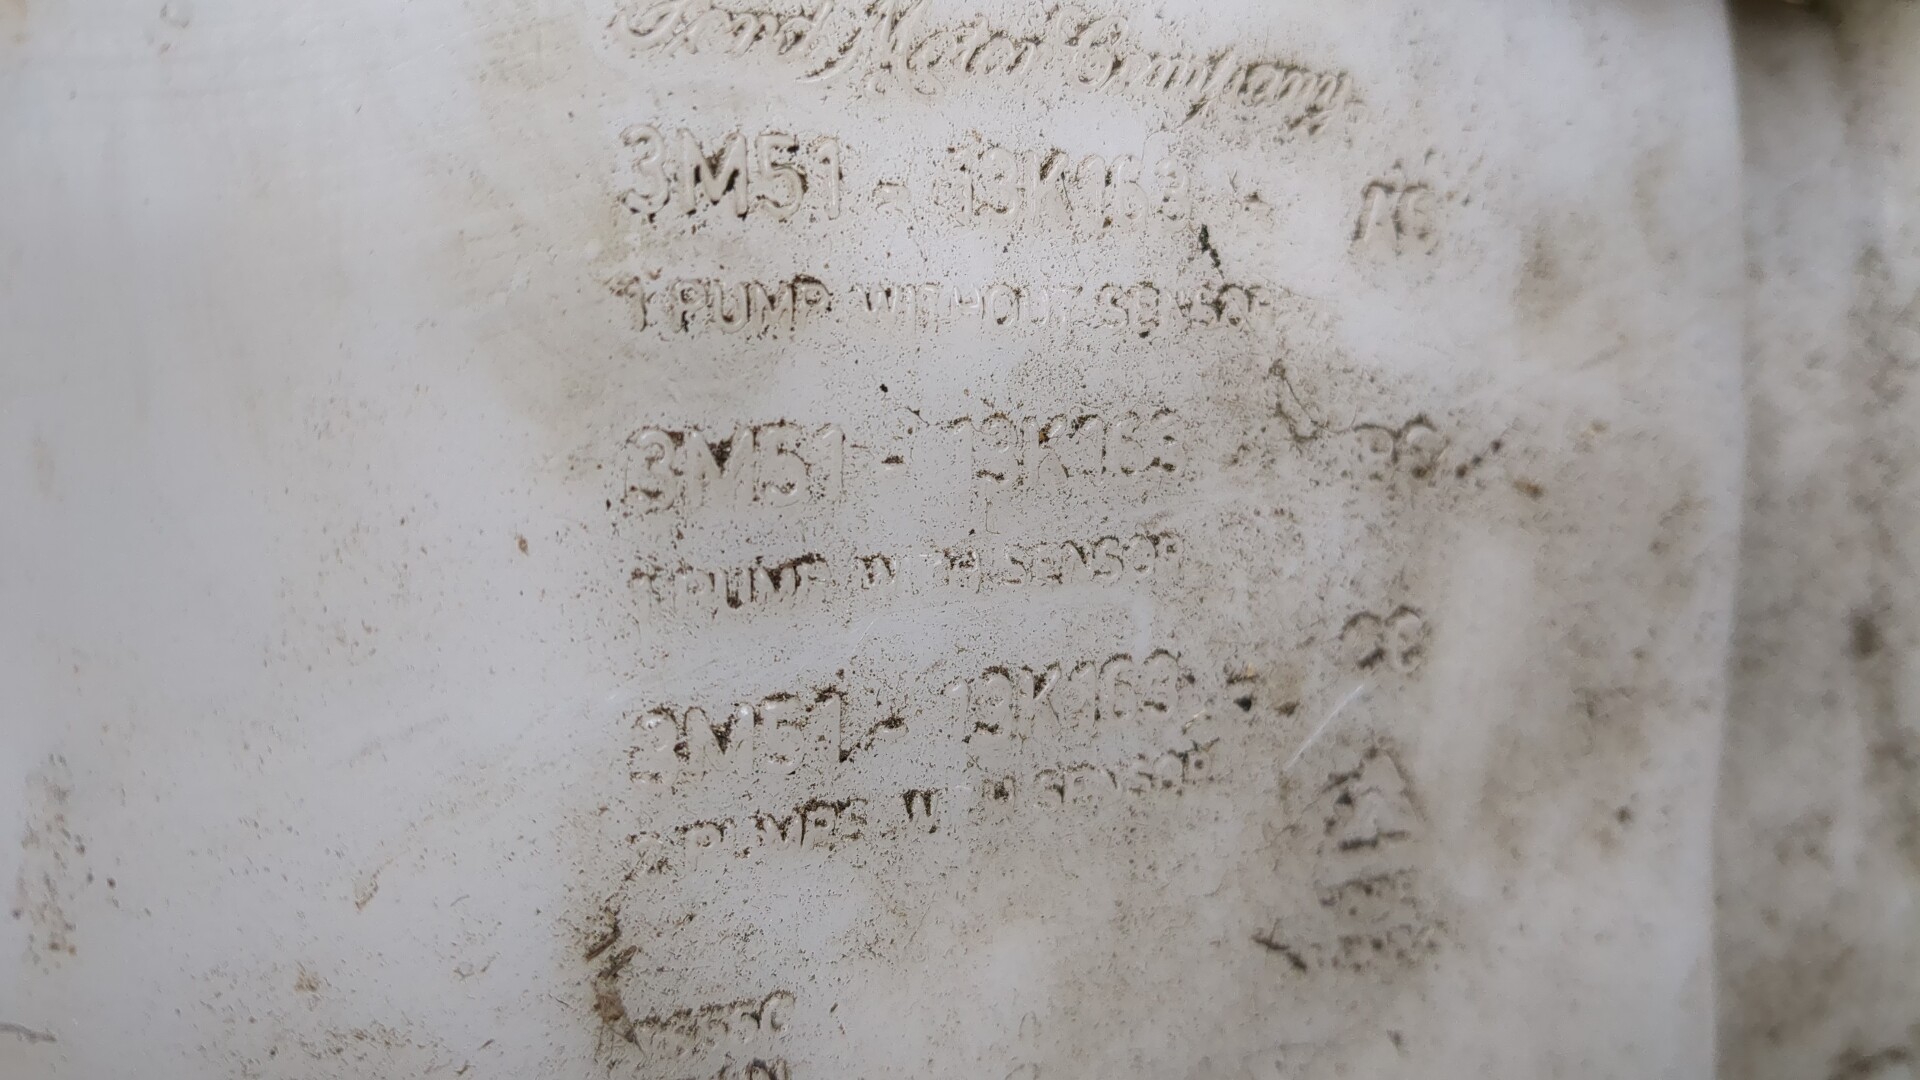 Ford Motor Company
3M51 - 13K163 - AG
1 PUMP WITHOUT SENSOR
3M51 - 13K163 -
1 PUMP WITH SENSOR
3M51 - 13K163 -
2 PUMPS WITH SENSOR